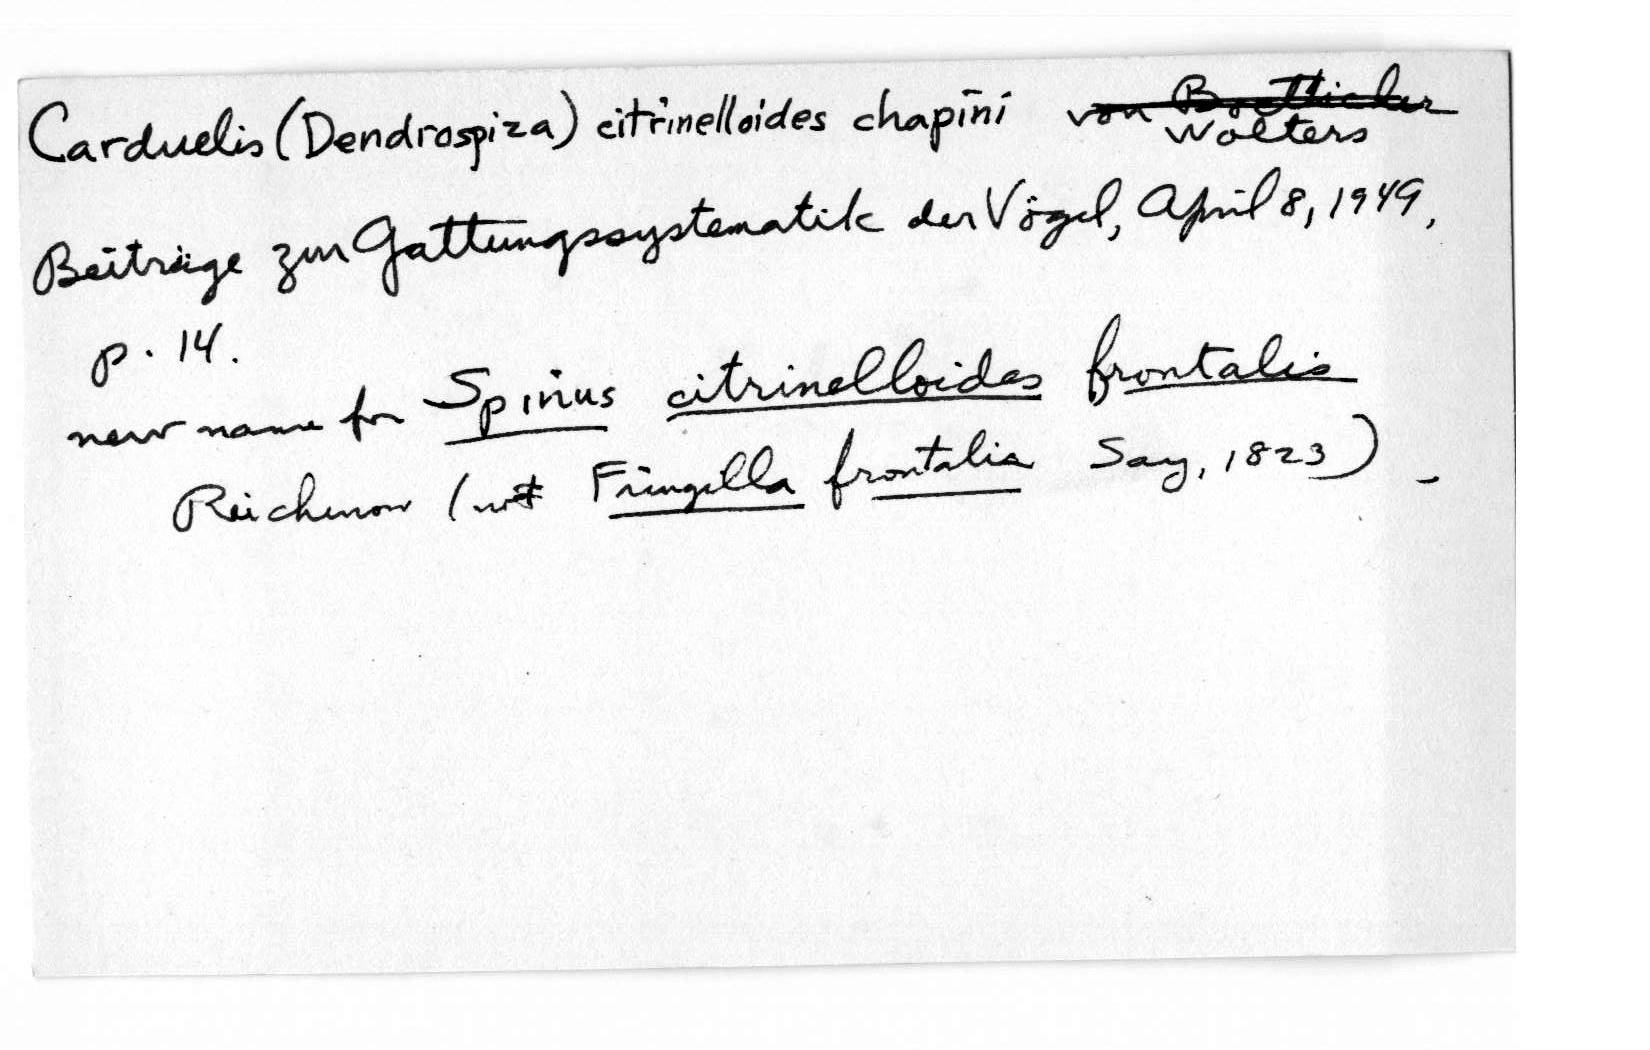 Carduelis (Dendrospiza) citrinelloides chapini von Boetticher
Wolters
Beiträge zur Gattungssystematik der Vögel, April 8, 1949,
p. 14.
new name for Spinus citrinelloides frontalis
Reichenow (not Fringilla frontalis Say, 1823).